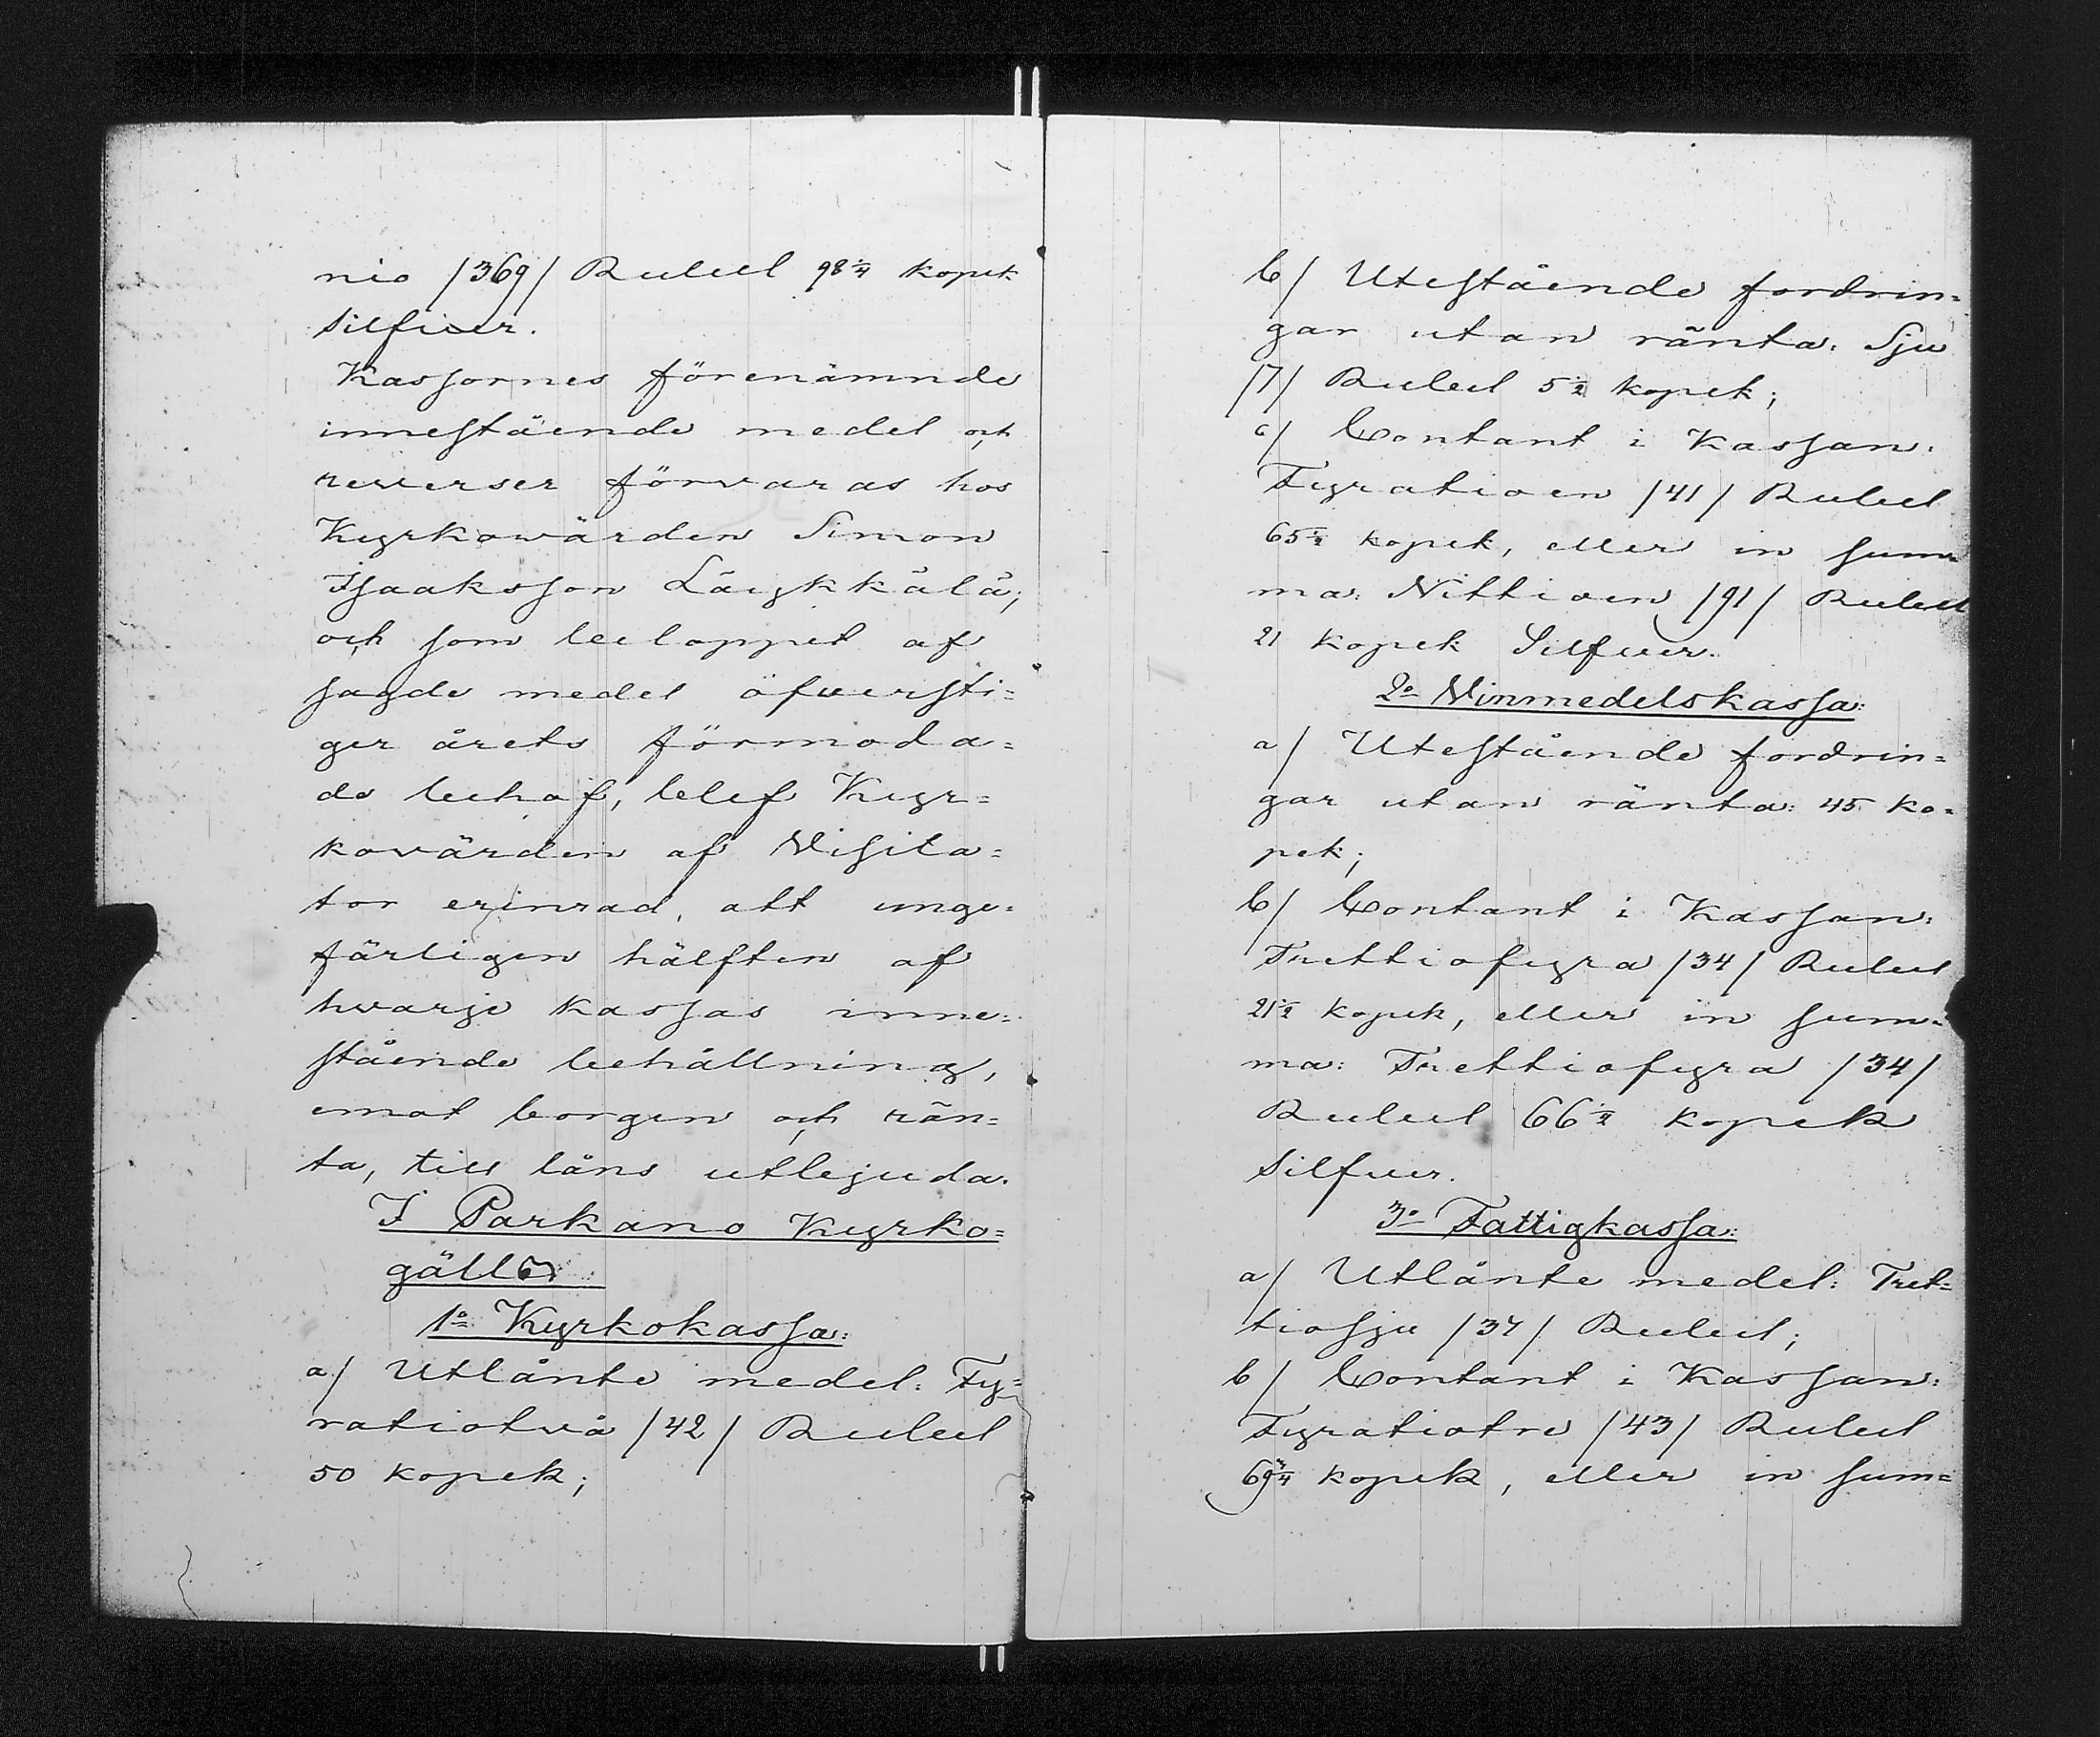 nio /369/ Rubel 98 1/4 kopek
silfver.
Kassornes förenämnde
innestående medel och
reverser förvaras hos
Kyrkovärden Simon
Isaaksson
och som beloppet af
sagde medel öfversti=
ger årets förmoda=
de behof, blef Kyr=
kovärden af Visita=
tor erinrad, att unge=
färligen hälften af
hvarje kassas inne=
stående behållning,
emot borgen och rän=
ta, till låns utbjuda.
I Parkano Kyrko=
gäll
1o Kyrkokassa:
a/ Utlånte medel: Fy=
ratiotvå /42/ Rubel
50 kopek;
b/ Utestående fordrin=
gar utan ränta: Sju
/7/ Rubel 5 1/2 kopek;
c/ Contant i Kassan:
Fyratioen /41/ Rubel
65 1/2 kopek, eller in sum=
ma: Nittioen /91/ Rubel
21 kopek Silfver.
2o Vinmedelskassa:
a/ Utestående fordrin=
gar utan ränta: 45 ko=
pek;
b/ Contant i Kassan:
Trettiofyra /34/ Rubel
21 1/2 kopek, eller in sum=
ma: Trettiofyra /34/
Rubel 66 1/2 kopek
silfver.
3o Fattigkassa:
a/ Utlånte medel: Tret=
tiosju /37/ Rubel;
b/ Contant i Kassan:
Fyratiotre /43/ Rubel
69 3/4 kopek, eller in sum=